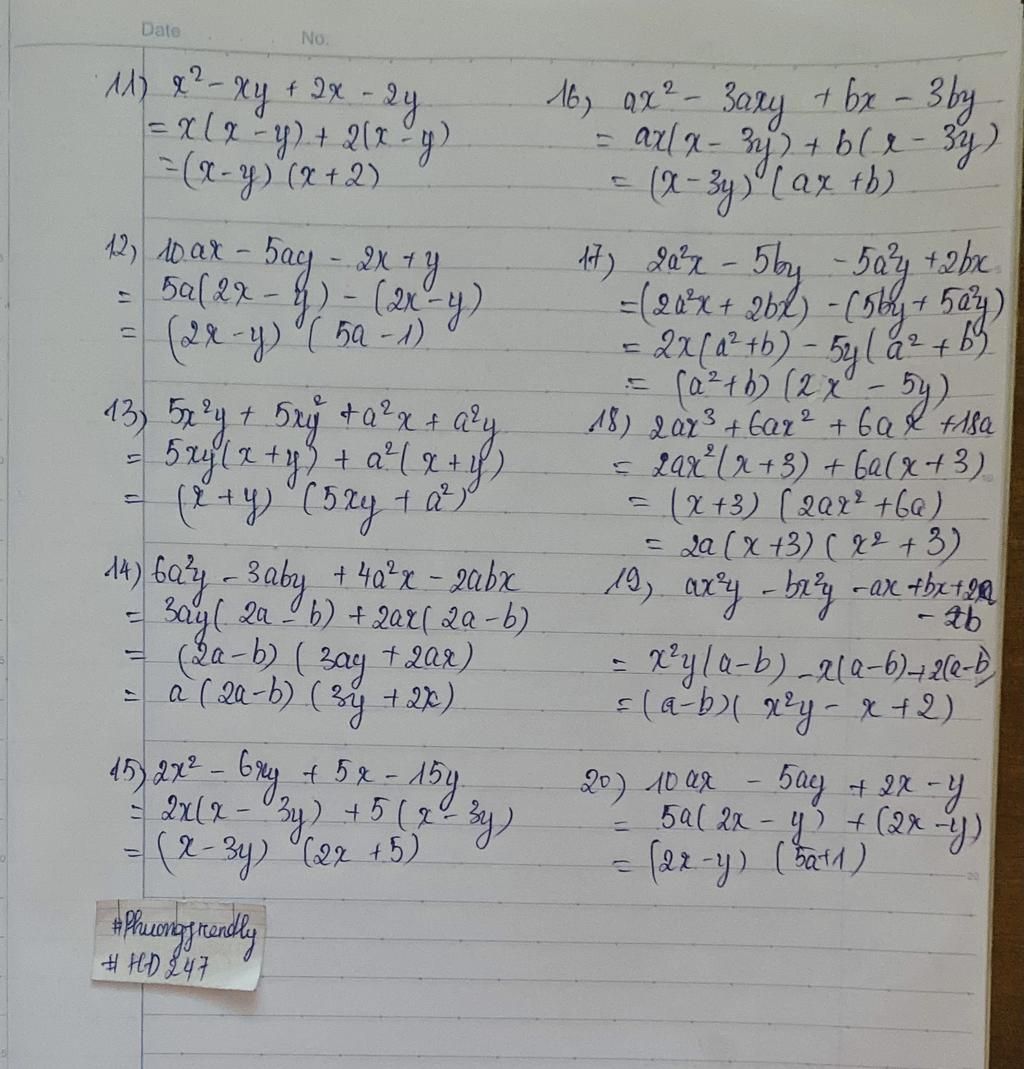 Date No.
11) x² - xy + 2x - 2y
= x(x - y) + 2(x - y)
= (x-y) (x+2)
12) 10ax - 5ay - 2x + y
= 5a(2x - y) - (2x - y)
= (2x - y) (5a - 1)
13) 5x²y + 5xy² + a²x + a²y
= 5xy(x+y) + a²(x+y)
= (x+y) (5xy + a²)
14) 6a²y - 3aby + 4a²x - 2abx
= 3ay(2a - b) + 2ax(2a - b)
= (2a-b) (3ay + 2ax)
= a(2a-b) (3y + 2x)
15) 2x² - 6xy + 5x - 15y
= 2x(x - 3y) + 5(x - 3y)
= (x-3y) (2x + 5)
#Phuongfriendly
#HD247
16) ax² - 3axy + bx - 3by
= ax(x - 3y) + b(x - 3y)
= (x-3y) (ax + b)
17) 2a²x - 5by - 5a²y + 2bx
= (2a²x + 2bx) - (5by + 5a²y)
= 2x(a²+b) - 5y(a² + b)
= (a²+b) (2x - 5y)
18) 2ax³ + 6ax² + 6ax + 18a
= 2ax²(x+3) + 6a(x+3)
= (x+3) (2ax² + 6a)
= 2a(x+3) (x² + 3)
19) ax²y - bx²y - ax + bx + 2a
- 2b
= x²y(a-b) - x(a-b) + 2(a-b)
= (a-b)(x²y - x + 2)
20) 10ax - 5ay + 2x - y
= 5a(2x - y) + (2x - y)
= (2x-y) (5a+1)